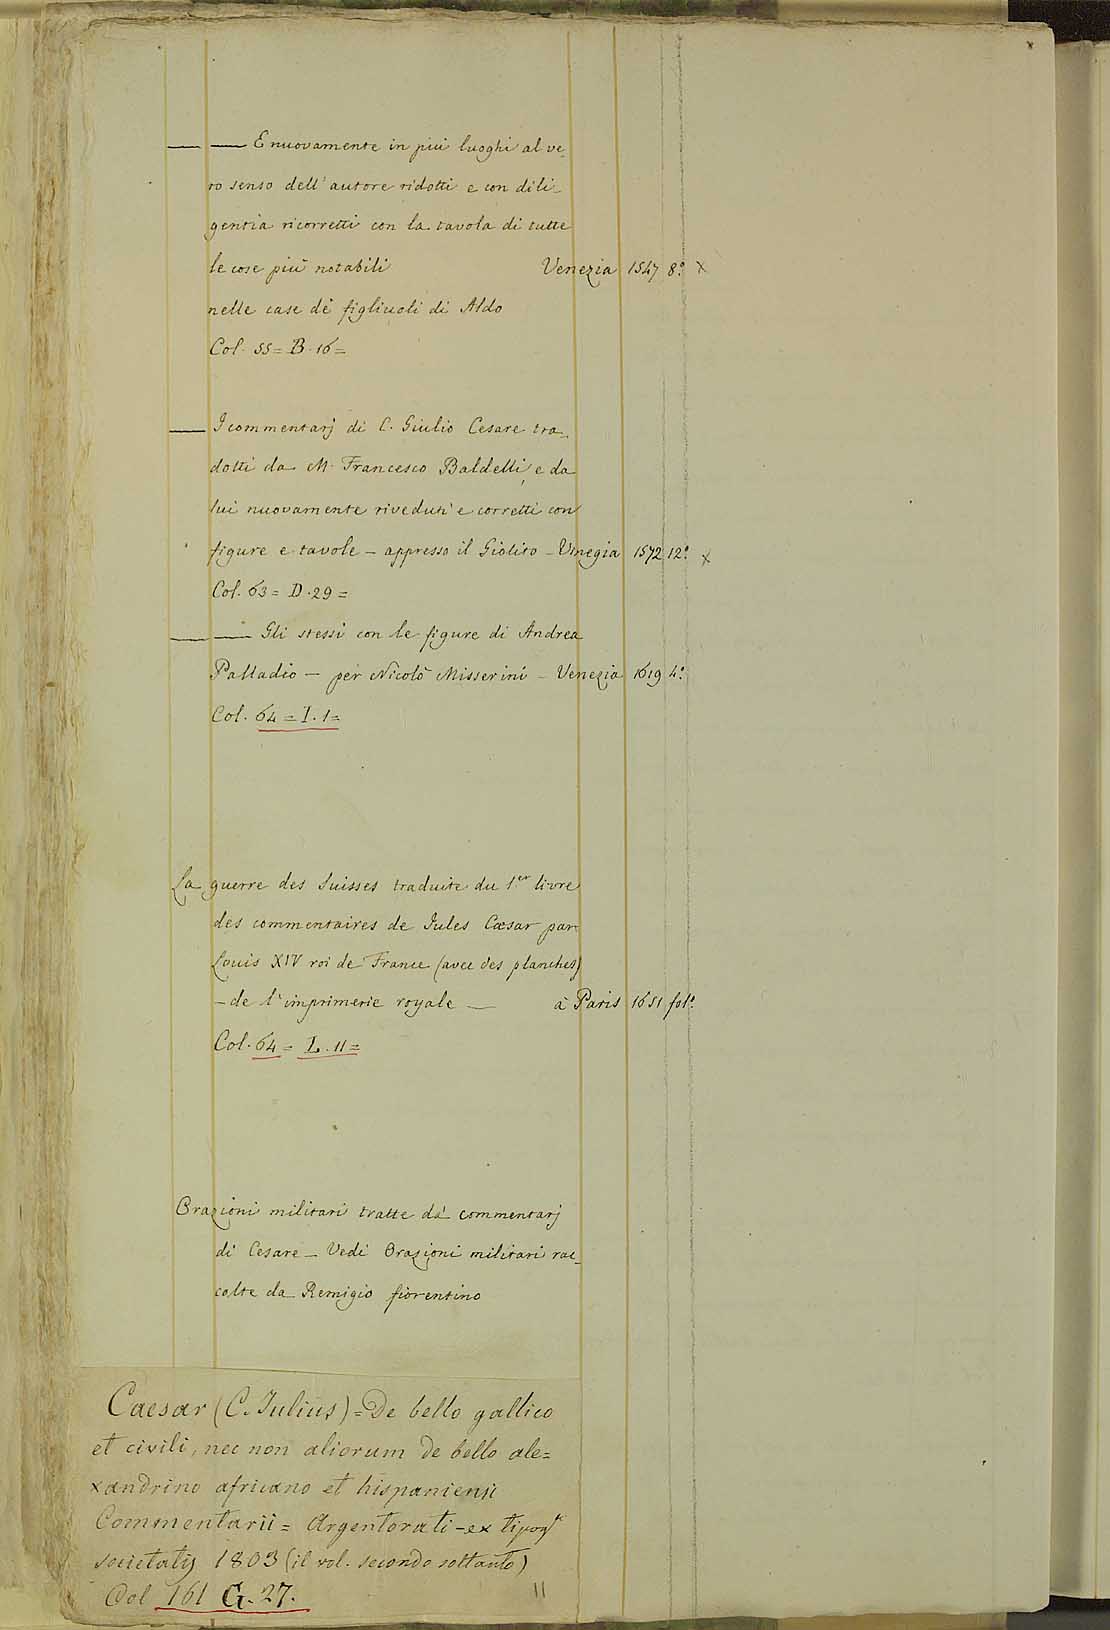 — — E nuovamente in più luoghi al ve-
ro senso dell' autore ridotti e con dili-
gentia ricorretti con la tavola di tutte
le cose più notabili Venezia 1547 8.° x
nelle case de' figliuoli di Aldo
Col. 55 = B. 16 =
— I commentarj di C. Giulio Cesare tra-
dotti da M. Francesco Baldelli, e da
lui nuovamente riveduti e corretti con
figure e tavole — appresso il Giolito — Vinegia 1572 12.° x
Col. 63 = D. 29 =
— — Gli stessi con le figure di Andrea
Palladio — per Nicolò Misserini — Venezia 1619 4.°
Col. 64 = I. 1 =
La guerre des Suisses traduite du 1.er livre
des commentaires de Jules Cæsar par
Louis XIV roi de France (avec des planches)
— de l'imprimerie royale — à Paris 1651 fol.°
Col. 64 = L. 11 =
Orazioni militari tratte da' commentarj
di Cesare — Vedi Orazioni militari rac-
colte da Remigio fiorentino
Caesar (C. Julius) = De bello gallico
et civili, nec non aliorum de bello ale=
xandrino africano et hispaniensi
Commentarii = Argentorati — ex tipog.
societatis 1803 (il vol. secondo soltanto)
Col 161 G. 27. "